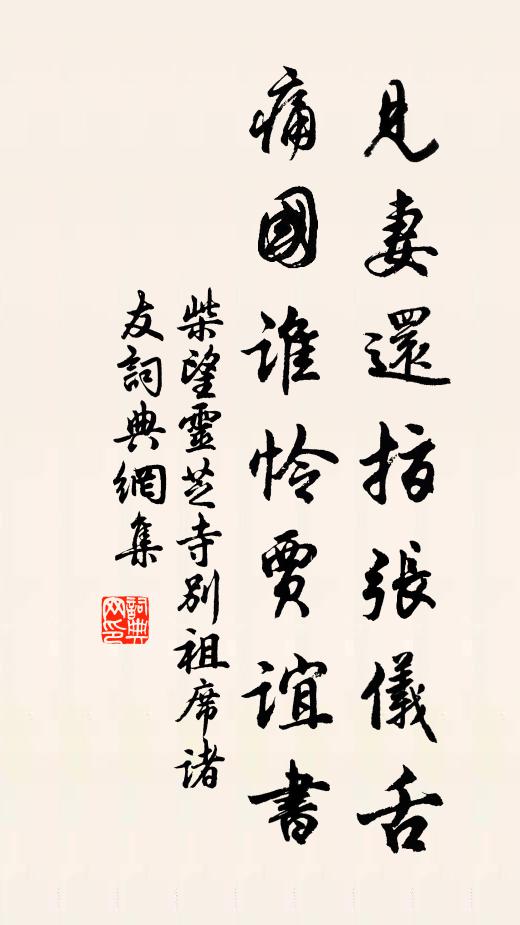 見妻還指張儀舌
痛國誰怜賈誼書
柴望靈芝寺別祖席諸
友詞典網集
詞典
网印